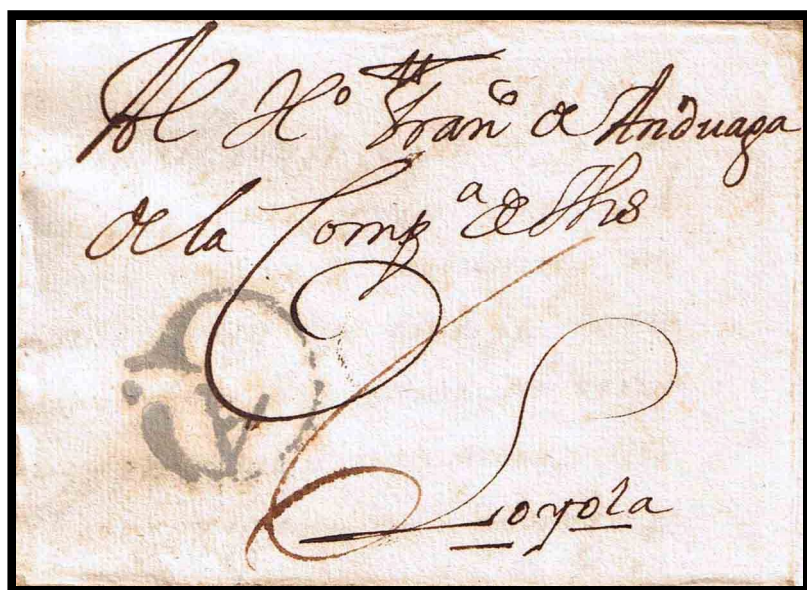 Al H.º Franco de Anduaga
de la Comp.ª de Jhs
Loyola